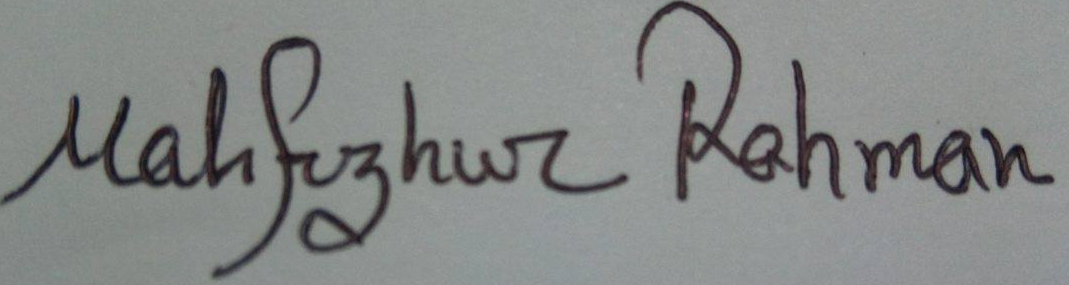 Mahfuzhur Rahman